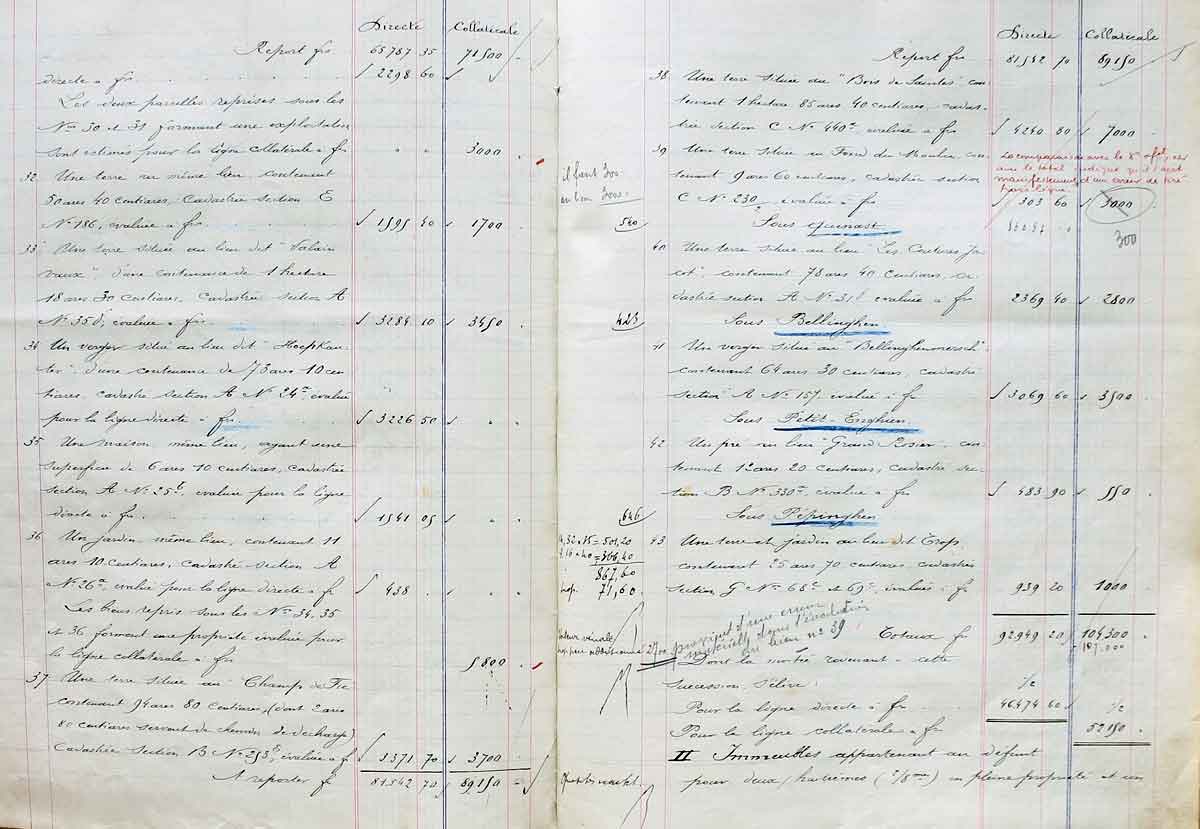 Directe Collatérale
Report fr 65787 35 71500
directe à fr 2298 60
Les deux parcelles reprises sous les
Nos 30 et 31 formant une exploitation
sont estimés pour la ligne collatérale à fr " " 3000
32 Une terre au même lieu contenant
50 ares 40 centiares, cadastrée section E
No 186, évaluée à fr 1595 40 1700
33 Une terre située au lieu dit
vaux", d'une contenance de 1 hectare
18 ares 30 centiares, cadastrée section A
No 350, évaluée à fr 3284 10 3450
34 Un verger situé au lieu dit "Hoopkan-
ter" d'une contenance de 75 ares 10 cen-
tiares, cadastré section A No 24a évalué
pour la ligne directe à fr 3226 50
35 Une maison même lieu, ayant une
superficie de 6 ares 10 centiares, cadastrée
section A No 25b, évaluée pour la ligne
directe à fr 1541 05
36 Un jardin même lieu, contenant 11
ares 10 centiares, cadastré section A
No 26a, évalué pour la ligne directe à fr 438
Les biens repris sous les Nos 34, 35
et 36 formant une propriété évaluée pour
la ligne collatérale à fr 5800
37 Une terre située au "Champ de
contenant 94 ares 80 centiares, (dont 2 ares
80 centiares servant de chemin de décharge)
Cadastrée section B No 253, évaluée à fr 3371 70 3700
A reporter fr 81542 70 89150
Directe Collatérale
Report fr 81542 70 89150
38 Une terre située au "Bois de Saintes", con-
tenant 1 hectare 85 ares 40 centiares, cadas-
trée section C No 440, évaluée à fr 4240 80 7000
39 Une terre située au Fond du Moulin, con-
tenant 9 ares 60 centiares, cadastrée section
C No 230, évaluée à fr 303 60 3000
La comparaison avec le
avec le total indique qu'il s'agit
manifestement d'une erreur de
il faut 300
au lieu 3000.
300
540 Sous Quenast
40 Une terre située au lieu "Les Coutures Ja-
cot", contenant 78 ares 40 centiares, ca-
dastrée section A No 31 évaluée à fr 2369 40 2800
423 Sous Bellinghen
41 Un verger situé au "Bellinghenmersch"
contenant 64 ares 30 centiares, cadastré
section A No 157, évalué à fr 3069 60 3500
Sous Petit-Enghien
42 Un pré au lieu "Grand Losier", con-
tenant 12 ares 20 centiares, cadastré sec-
tion B No 330, évalué à fr 483 90 550
646 Sous Pepinghen
43 Une terre et jardin au lieu dit Trop
contenant 25 ares 70 centiares cadastrés
section G Nos 68 et 69, évalués à fr 939 20 1000
= 501,20
= 366,40
867,60
71,60
Totaux fr 92949 20 104300
107.000
Valeur vénale
2700 provient d'une erreur
matérielle dans l'évaluation
du bien no 39
Dont la moitié revenant à cette
succession s'élève: 1/2
Pour la ligne directe à fr 46474 60 1/2
Pour la ligne collatérale à fr 52150
II Immeubles appartenant au défunt
pour deux/huitièmes (2/8èmes) en pleine propriété et un